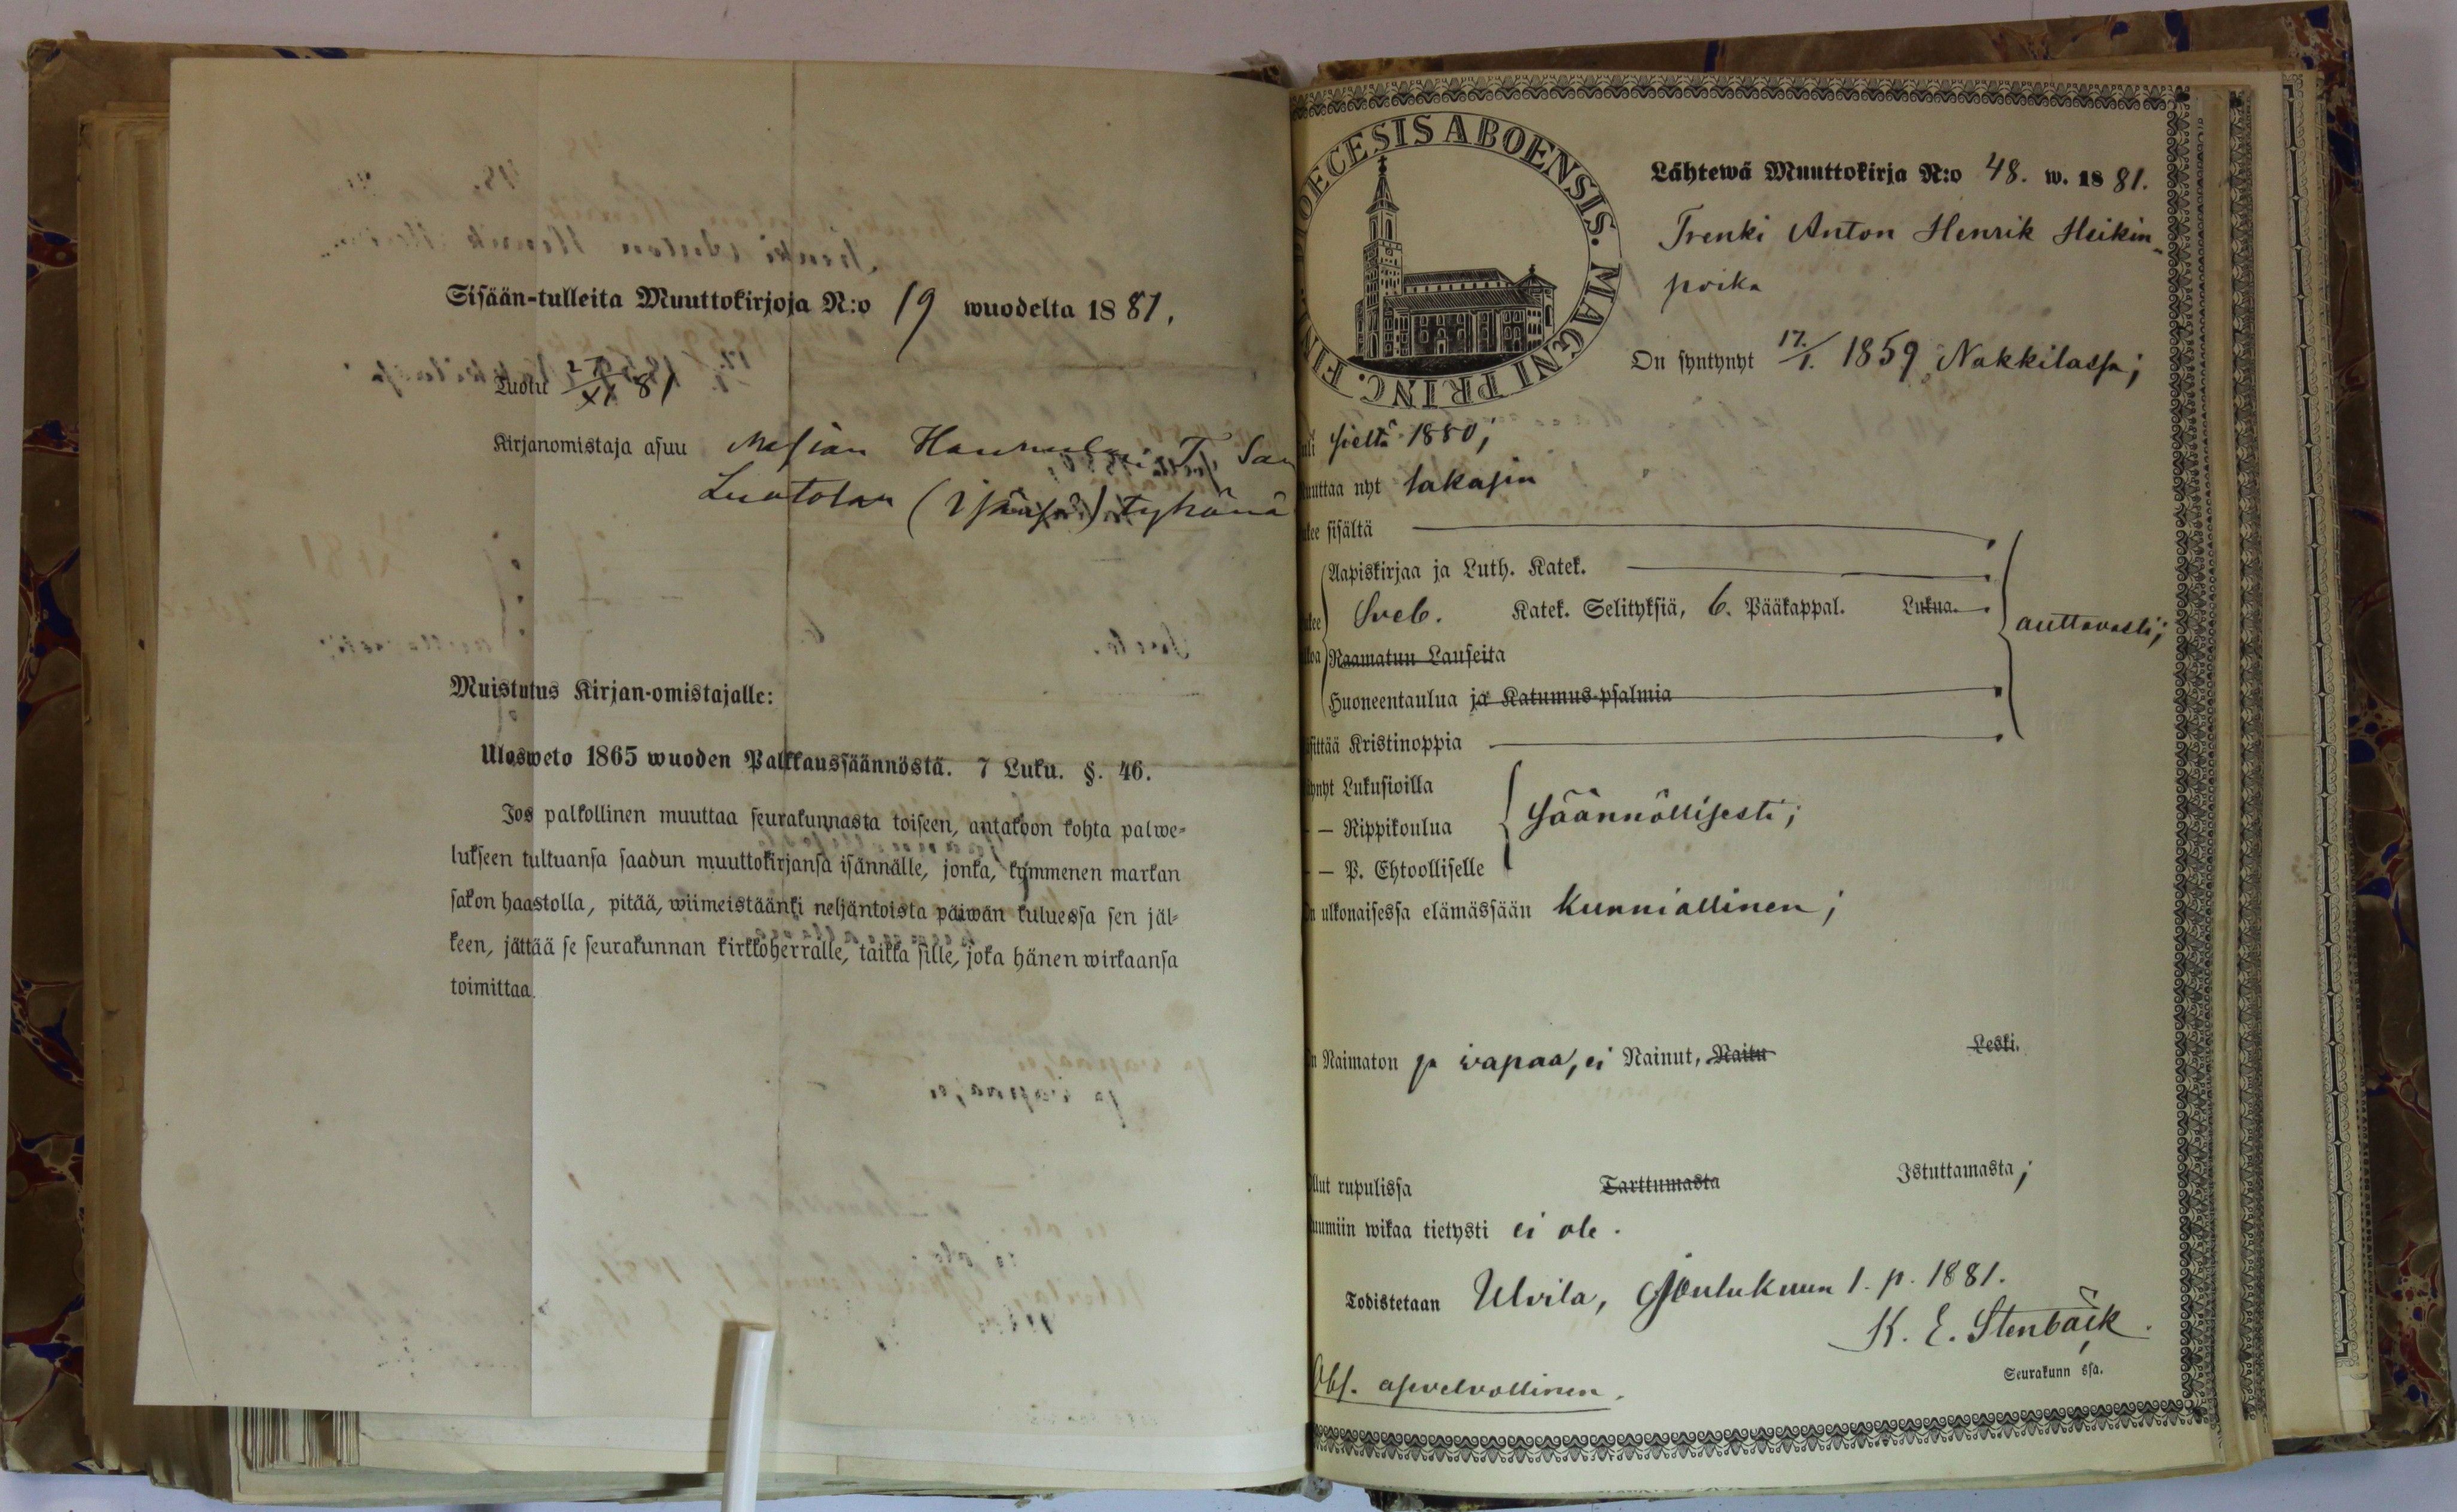 Sisään-tulleita Muuttokirjoja N:o 19 wuodelta 1881.
Tuotu 27/XI 81
Kirjanomistaja asuu Masian
Luotolan ( ) tykönä
Muistutus Kirjan-omistajalle:
Ulosweto 1865 wuoden Palkkaussäännöstä. 7 Luku. §. 46.
Jos palkollinen muuttaa seurakunnasta toiseen, antakoon kohta palwe-
lukseen tultuansa saadun muuttokirjansa isännälle, jonka, kymmenen markan
sakon haastolla, pitää, wiimeistäänki neljäntoista päiwän kuluessa sen jäl-
keen, jättää se seurakunnan kirkkoherralle, taikka sille, joka hänen wirkaansa
toimittaa.
DIOECESIS ABOENSIS. MAGNI PRINC. FINL.
Lähtewä Muuttokirja N:o 48. w. 1881.
Trenki Anton Henrik Heikin-
poika
On syntynyt 17./1. 1859 Nakkilassa;
uli sieltä 1880;
uuttaa nyt takasin
kee sisältä
Aapiskirjaa ja Luth. Katek.
kee Sveb. Katek. Selityksiä, 6. Pääkappal. Lukua. auttavasti;
koa Raamatun Lauseita
Huoneentaulua ja Katumus-psalmia
sittää Kristinoppia
ynyt Lukusioilla
— Rippikoulua säännöllisesti;
— P. Ehtoolliselle
n ulkonaisessa elämässään kunniallinen;
n Naimaton ja vapaa, ei Nainut, Naitu Leski.
llut rupulissa Tarttumasta Istuttamasta;
uumiin wikaa tietysti ei ole.
Todistetaan Ulvila, Joulukuun 1. p. 1881.
K. E. Stenbäck.
Seurakunn ssa.
Obs. asevelvollinen.